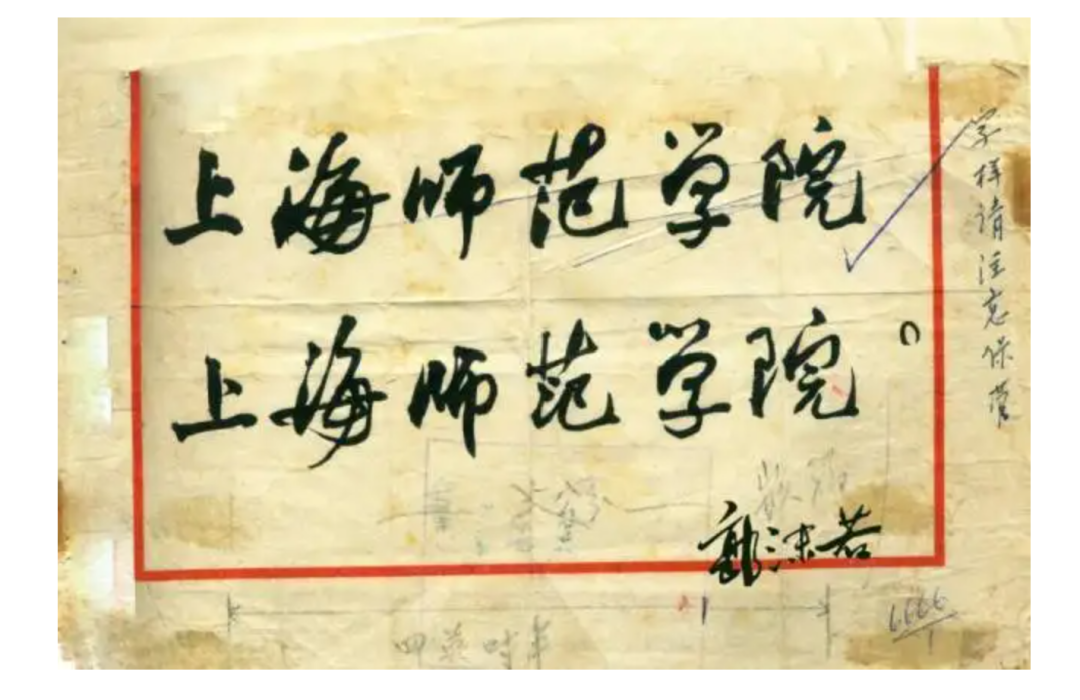 上海师范学院
上海师范学院。
郭沫若
字样请注意保管